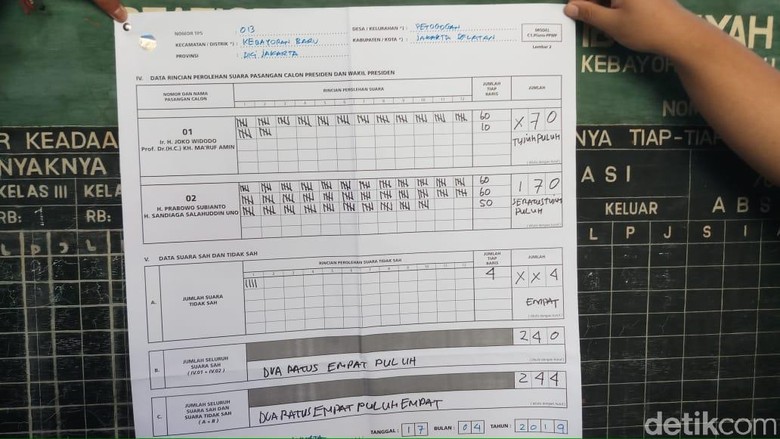 NOMOR TPS : 013
DESA / KELURAHAN *) : PETOGOGAN
KECAMATAN / DISTRIK *) : KEBAYORAN BARU
KABUPATEN / KOTA *) : JAKARTA SELATAN
PROVINSI : DKI JAKARTA
MODEL
C1.Plano-PPWP
Lembar 2
IV. DATA RINCIAN PEROLEHAN SUARA PASANGAN CALON PRESIDEN DAN WAKIL PRESIDEN
NOMOR DAN NAMA
PASANGAN CALON
RINCIAN PEROLEHAN SUARA
1 2 3 4 5 6 7 8 9 10 11 12
JUMLAH
TIAP
BARIS
JUMLAH
01
Ir. H. JOKO WIDODO
Prof. Dr.(H.C.) KH. MA'RUF AMIN
60
10
X 7 0
TUJUH PULUH
02
H. PRABOWO SUBIANTO
H. SANDIAGA SALAHUDDIN UNO
60
60
50
1 7 0
SERATUS TUJUH
PULUH
V. DATA SUARA SAH DAN TIDAK SAH
RINCIAN PEROLEHAN SUARA TIDAK SAH
1 2 3 4 5 6 7 8 9 10 11 12
JUMLAH
TIAP
BARIS
JUMLAH
A.
JUMLAH SUARA
TIDAK SAH
4
X X 4
EMPAT
B.
JUMLAH SELURUH
SUARA SAH
( IV.01 + IV.02 )
DUA RATUS EMPAT PULUH
2 4 0
C.
JUMLAH SELURUH
SUARA SAH DAN
SUARA TIDAK SAH
( A + B )
DUA RATUS EMPAT PULUH EMPAT
2 4 4
TANGGAL : 17 BULAN : 04 TAHUN : 2019
R KEADAA
NYAKNYA
KELAS III
KELA
RB:
RB:
KEBAYOR
NYA TIAP-TIAP
ASI
KELUAR
A B S
L P J S I A
detikcom